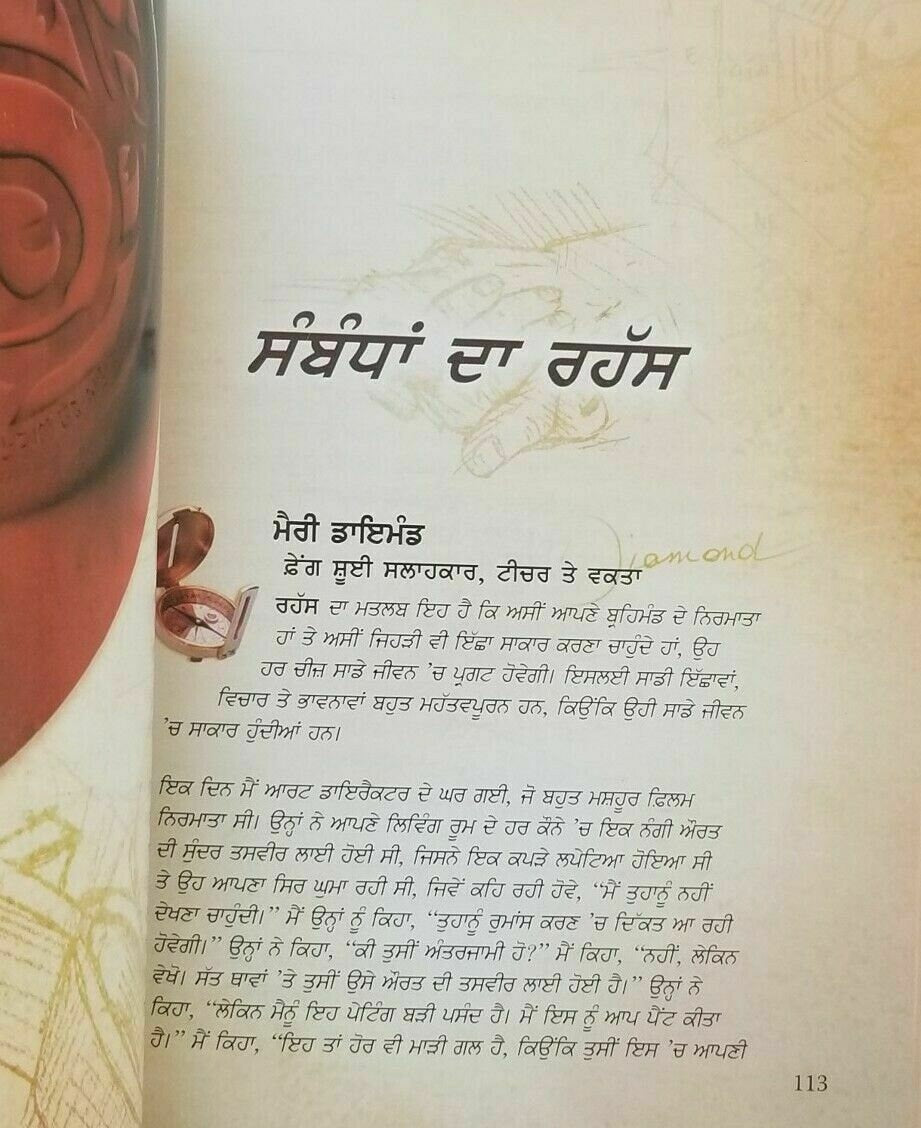 ਸੰਬੰਧਾਂ ਦਾ ਰਹੱਸ
ਮੈਰੀ ਡਾਇਮੰਡ
Diamond
ਫ਼ੇਂਗ ਸ਼ੂਈ ਸਲਾਹਕਾਰ, ਟੀਚਰ ਤੇ ਵਕਤਾ
ਰਹੱਸ ਦਾ ਮਤਲਬ ਇਹ ਹੈ ਕਿ ਅਸੀਂ ਆਪਣੇ ਬ੍ਰਹਿਮੰਡ ਦੇ ਨਿਰਮਾਤਾ
ਹਾਂ ਤੇ ਅਸੀਂ ਜਿਹੜੀ ਵੀ ਇੱਛਾ ਸਾਕਾਰ ਕਰਣਾ ਚਾਹੁੰਦੇ ਹਾਂ, ਉਹ
ਹਰ ਚੀਜ਼ ਸਾਡੇ ਜੀਵਨ ’ਚ ਪ੍ਰਗਟ ਹੋਵੇਗੀ। ਇਸਲਈ ਸਾਡੀ ਇੱਛਾਵਾਂ,
ਵਿਚਾਰ ਤੇ ਭਾਵਨਾਵਾਂ ਬਹੁਤ ਮਹੱਤਵਪੂਰਨ ਹਨ, ਕਿਉਂਕਿ ਉਹੀ ਸਾਡੇ ਜੀਵਨ
’ਚ ਸਾਕਾਰ ਹੁੰਦੀਆਂ ਹਨ।
ਇਕ ਦਿਨ ਮੈਂ ਆਰਟ ਡਾਇਰੈਕਟਰ ਦੇ ਘਰ ਗਈ, ਜੋ ਬਹੁਤ ਮਸ਼ਹੂਰ ਫ਼ਿਲਮ
ਨਿਰਮਾਤਾ ਸੀ। ਉਨ੍ਹਾਂ ਨੇ ਆਪਣੇ ਲਿਵਿੰਗ ਰੂਮ ਦੇ ਹਰ ਕੌਨੇ ’ਚ ਇਕ ਨੰਗੀ ਔਰਤ
ਦੀ ਸੁੰਦਰ ਤਸਵੀਰ ਲਾਈ ਹੋਈ ਸੀ, ਜਿਸਨੇ ਇਕ ਕਪੜੇ ਲਪੇਟਿਆ ਹੋਇਆ ਸੀ
ਤੇ ਉਹ ਆਪਣਾ ਸਿਰ ਘੁਮਾ ਰਹੀ ਸੀ, ਜਿਵੇਂ ਕਹਿ ਰਹੀ ਹੋਵੇ, “ਮੈਂ ਤੁਹਾਨੂੰ ਨਹੀਂ
ਦੇਖਣਾ ਚਾਹੁੰਦੀ।” ਮੈਂ ਉਨ੍ਹਾਂ ਨੂੰ ਕਿਹਾ, “ਤੁਹਾਨੂੰ ਰੁਮਾਂਸ ਕਰਣ ’ਚ ਦਿੱਕਤ ਆ ਰਹੀ
ਹੋਵੇਗੀ।” ਉਨ੍ਹਾਂ ਨੇ ਕਿਹਾ, “ਕੀ ਤੁਸੀਂ ਅੰਤਰਜਾਮੀ ਹੋ?” ਮੈਂ ਕਿਹਾ, “ਨਹੀਂ, ਲੇਕਿਨ
ਵੇਖੋ। ਸੱਤ ਥਾਵਾਂ ’ਤੇ ਤੁਸੀਂ ਉਸੇ ਔਰਤ ਦੀ ਤਸਵੀਰ ਲਾਈ ਹੋਈ ਹੈ।” ਉਨ੍ਹਾਂ ਨੇ
ਕਿਹਾ, “ਲੇਕਿਨ ਮੈਨੂੰ ਇਹ ਪੇਟਿੰਗ ਬੜੀ ਪਸੰਦ ਹੈ। ਮੈਂ ਇਸ ਨੂੰ ਆਪ ਪੈਂਟ ਕੀਤਾ
ਹੈ।” ਮੈਂ ਕਿਹਾ, “ਇਹ ਤਾਂ ਹੋਰ ਵੀ ਮਾੜੀ ਗਲ ਹੈ, ਕਿਉਂਕਿ ਤੁਸੀਂ ਇਸ ’ਚ ਆਪਣੀ
113